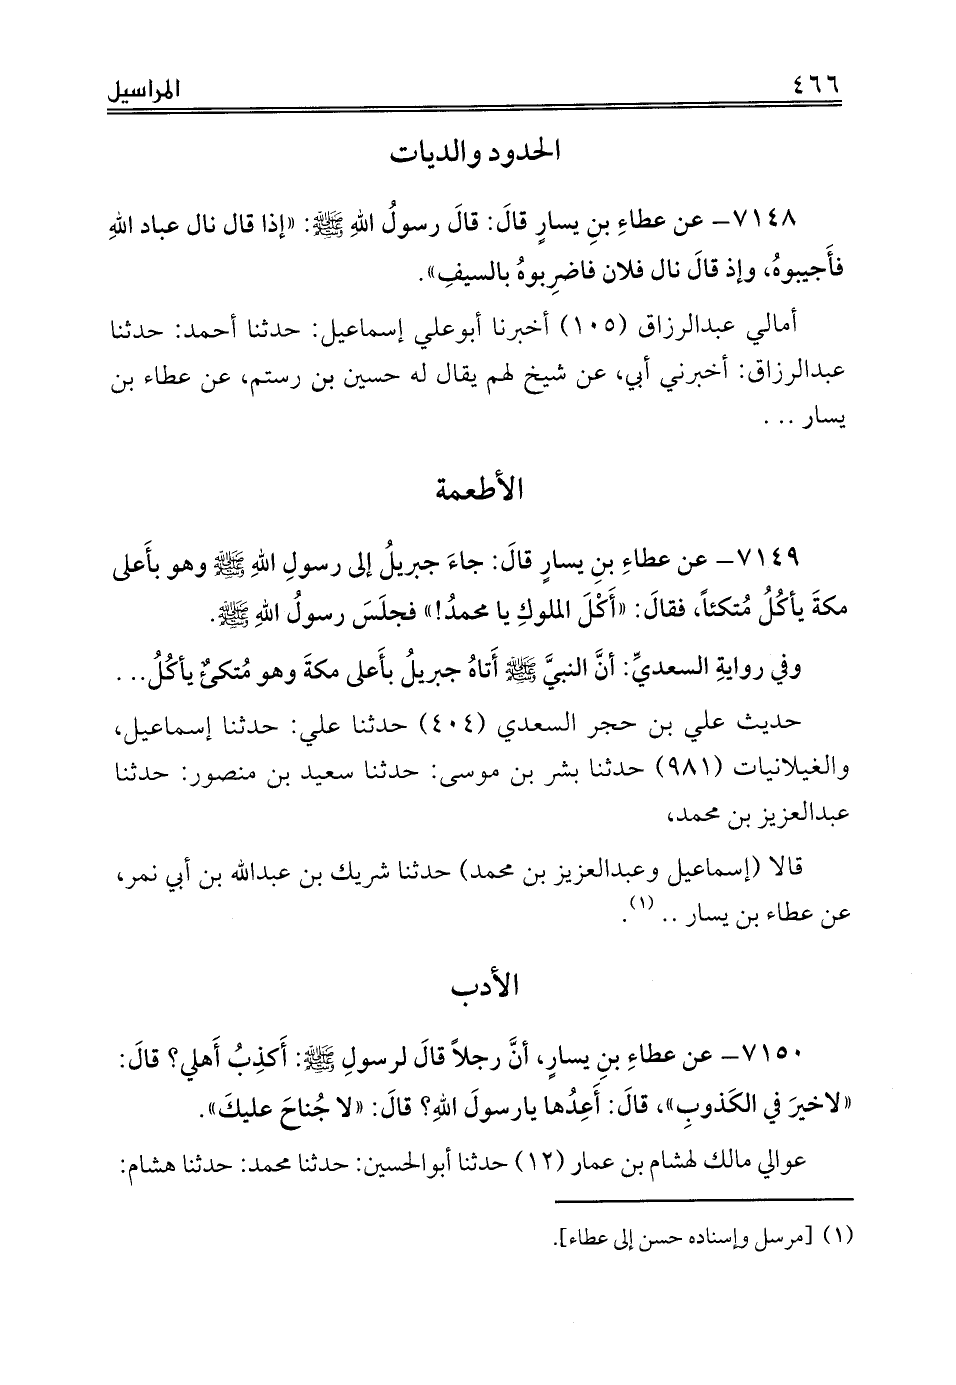 ٤٦٦
المراسيل
الحدود والديات
٧١٤٨– عن عطاءِ بنِ يسارٍ قالَ: قالَ رسولُ اللهِ ﷺ: «إذا قال نال عباد اللهِ
فأَجيبوهُ، وإذ قالَ نال فلان فاضرِبوهُ بالسيفِ».
أمالي عبدالرزاق (١٠٥) أخبرنا أبوعلي إسماعيل: حدثنا أحمد: حدثنا
عبدالرزاق: أخبرني أبي، عن شيخ لهم يقال له حسين بن رستم، عن عطاء بن
يسار ...
الأطعمة
٧١٤٩– عن عطاءِ بنِ يسارٍ قالَ: جاءَ جبريلُ إلى رسولِ اللهِ ﷺ وهو بأَعلى
مكةَ يأكُلُ مُتكئاً، فقالَ: «أَكْلَ الملوكِ يا محمدُ!» فجلَسَ رسولُ اللهِ ﷺ.
وفي روايةِ السعديِّ: أنَّ النبيَّ ﷺ أَتاهُ جبريلُ بأَعلى مكةَ وهو مُتكئٌ يأكُلُ...
حديث علي بن حجر السعدي (٤٠٤) حدثنا علي: حدثنا إسماعيل،
والغيلانيات (٩٨١) حدثنا بشر بن موسى: حدثنا سعيد بن منصور: حدثنا
عبدالعزيز بن محمد،
قالا (إسماعيل وعبدالعزيز بن محمد) حدثنا شريك بن عبدالله بن أبي نمر،
عن عطاء بن يسار .. (١).
الأدب
٧١٥٠– عن عطاءِ بنِ يسارٍ، أنَّ رجلاً قالَ لرسولِ ﷺ: أَكذِبُ أَهلي؟ قالَ:
«لاخيرَ في الكَذوبِ»، قالَ: أَعِدُها يارسولَ اللهِ؟ قالَ: «لا جُناحَ عليكَ».
عوالي مالك لهشام بن عمار (١٢) حدثنا أبوالحسين: حدثنا محمد: حدثنا هشام:
(١) [مرسل وإسناده حسن إلى عطاء].